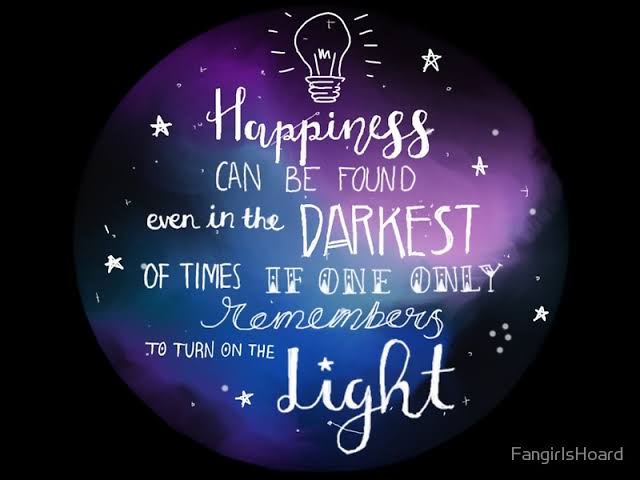 Happiness
CAN BE FOUND
even in the DARKEST
OF TIMES IF ONE ONLY
remembers
TO TURN ON THE Light
FangirlsHoard